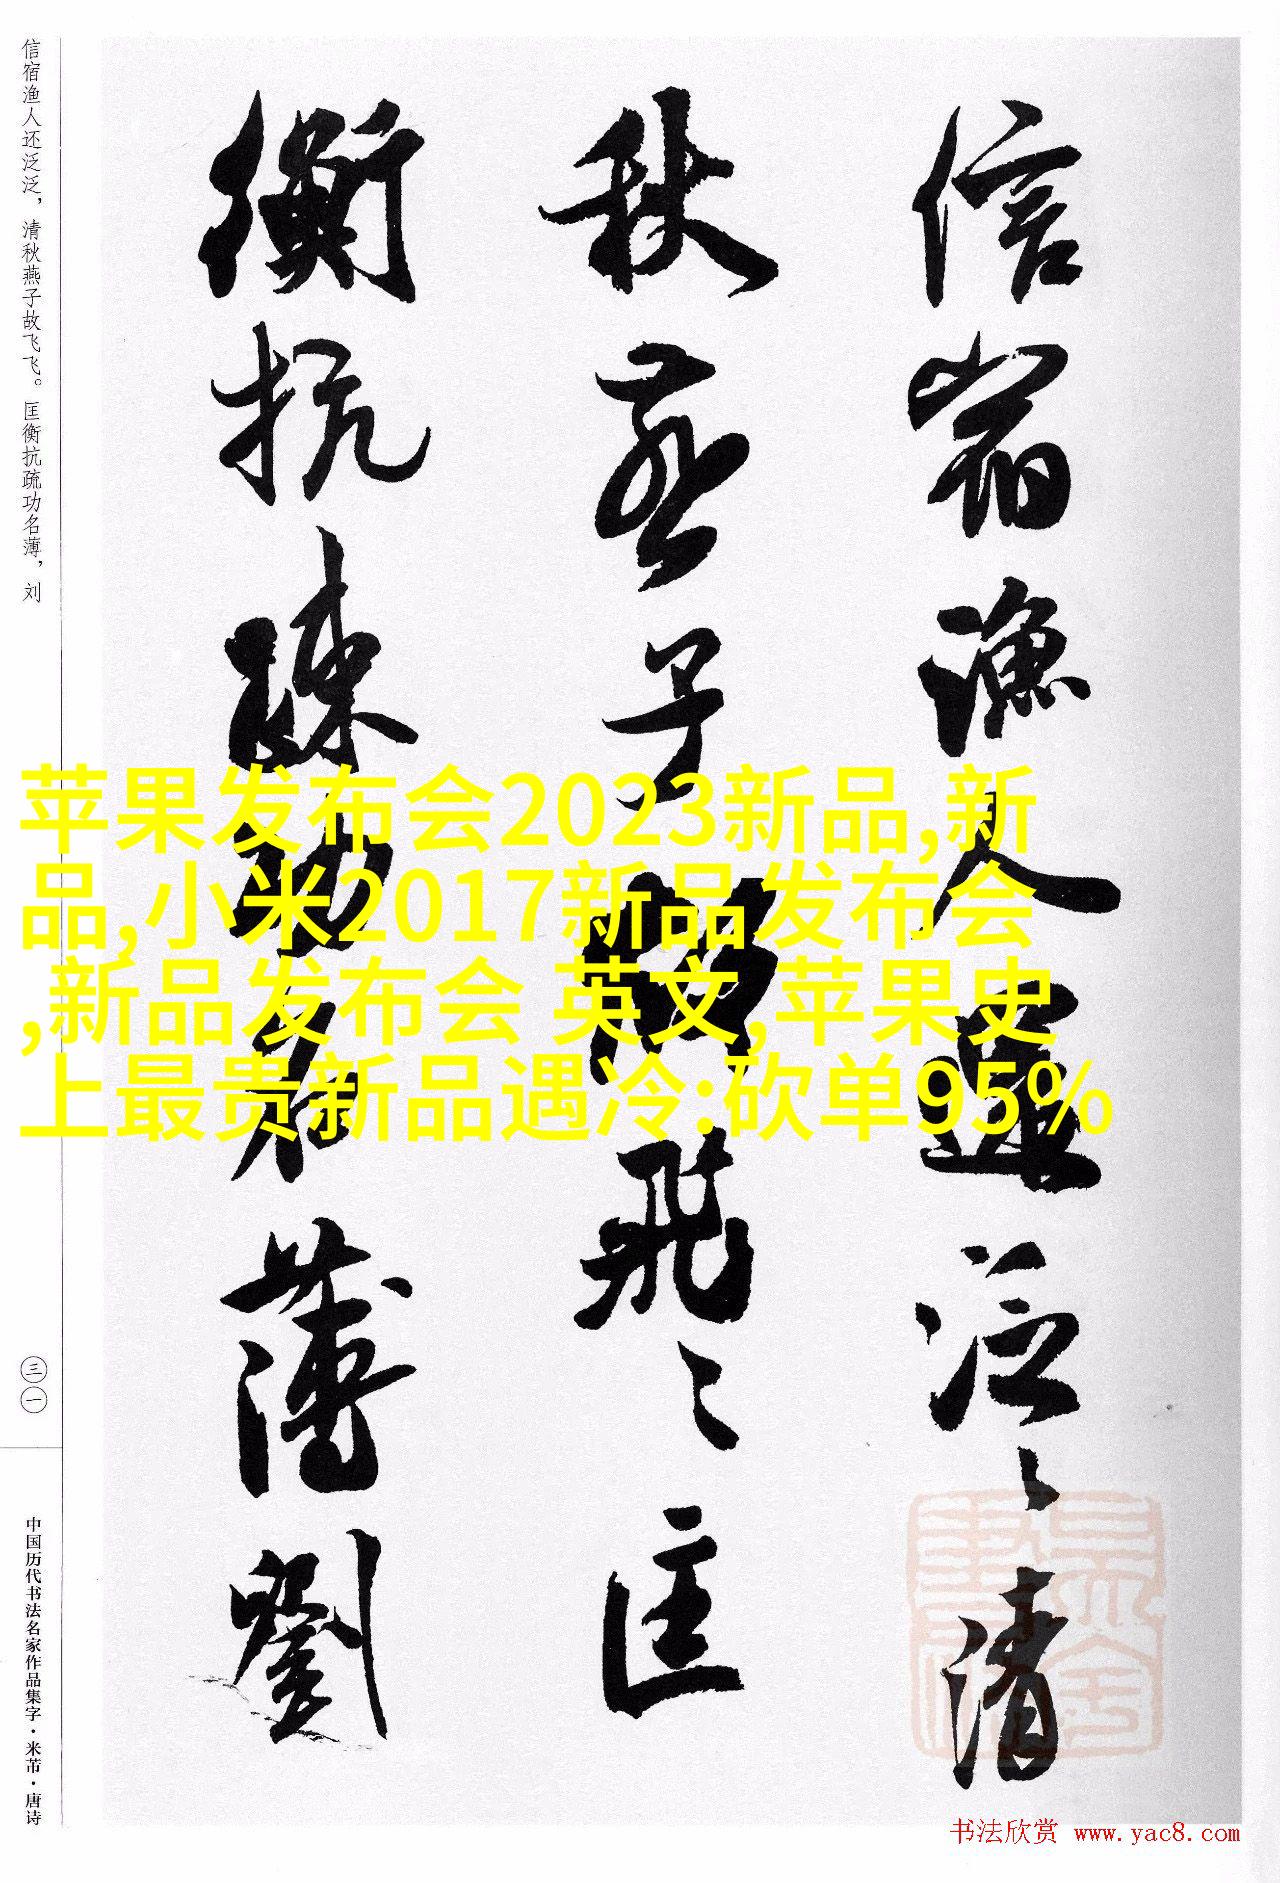 信宿渔人还泛泛，清秋燕子故飞飞。匡衡抗疏功名薄，刘
信宿漁人還泛〻清
秋燕子故飛〻匡
衡抗疏功名薄劉
苹果发布会2023新品,新
品,小米2017新品发布会
,新品发布会 英文,苹果史
上最贵新品遇冷:砍单95%
三一
中国历代书法名家作品集字·米芾·唐诗
书法欣赏 www.yac8.com